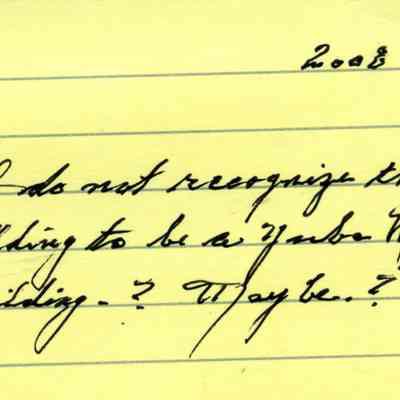 2008
I do not recognize th
lding to be a Yuba
ilding. ? Maybe. ?